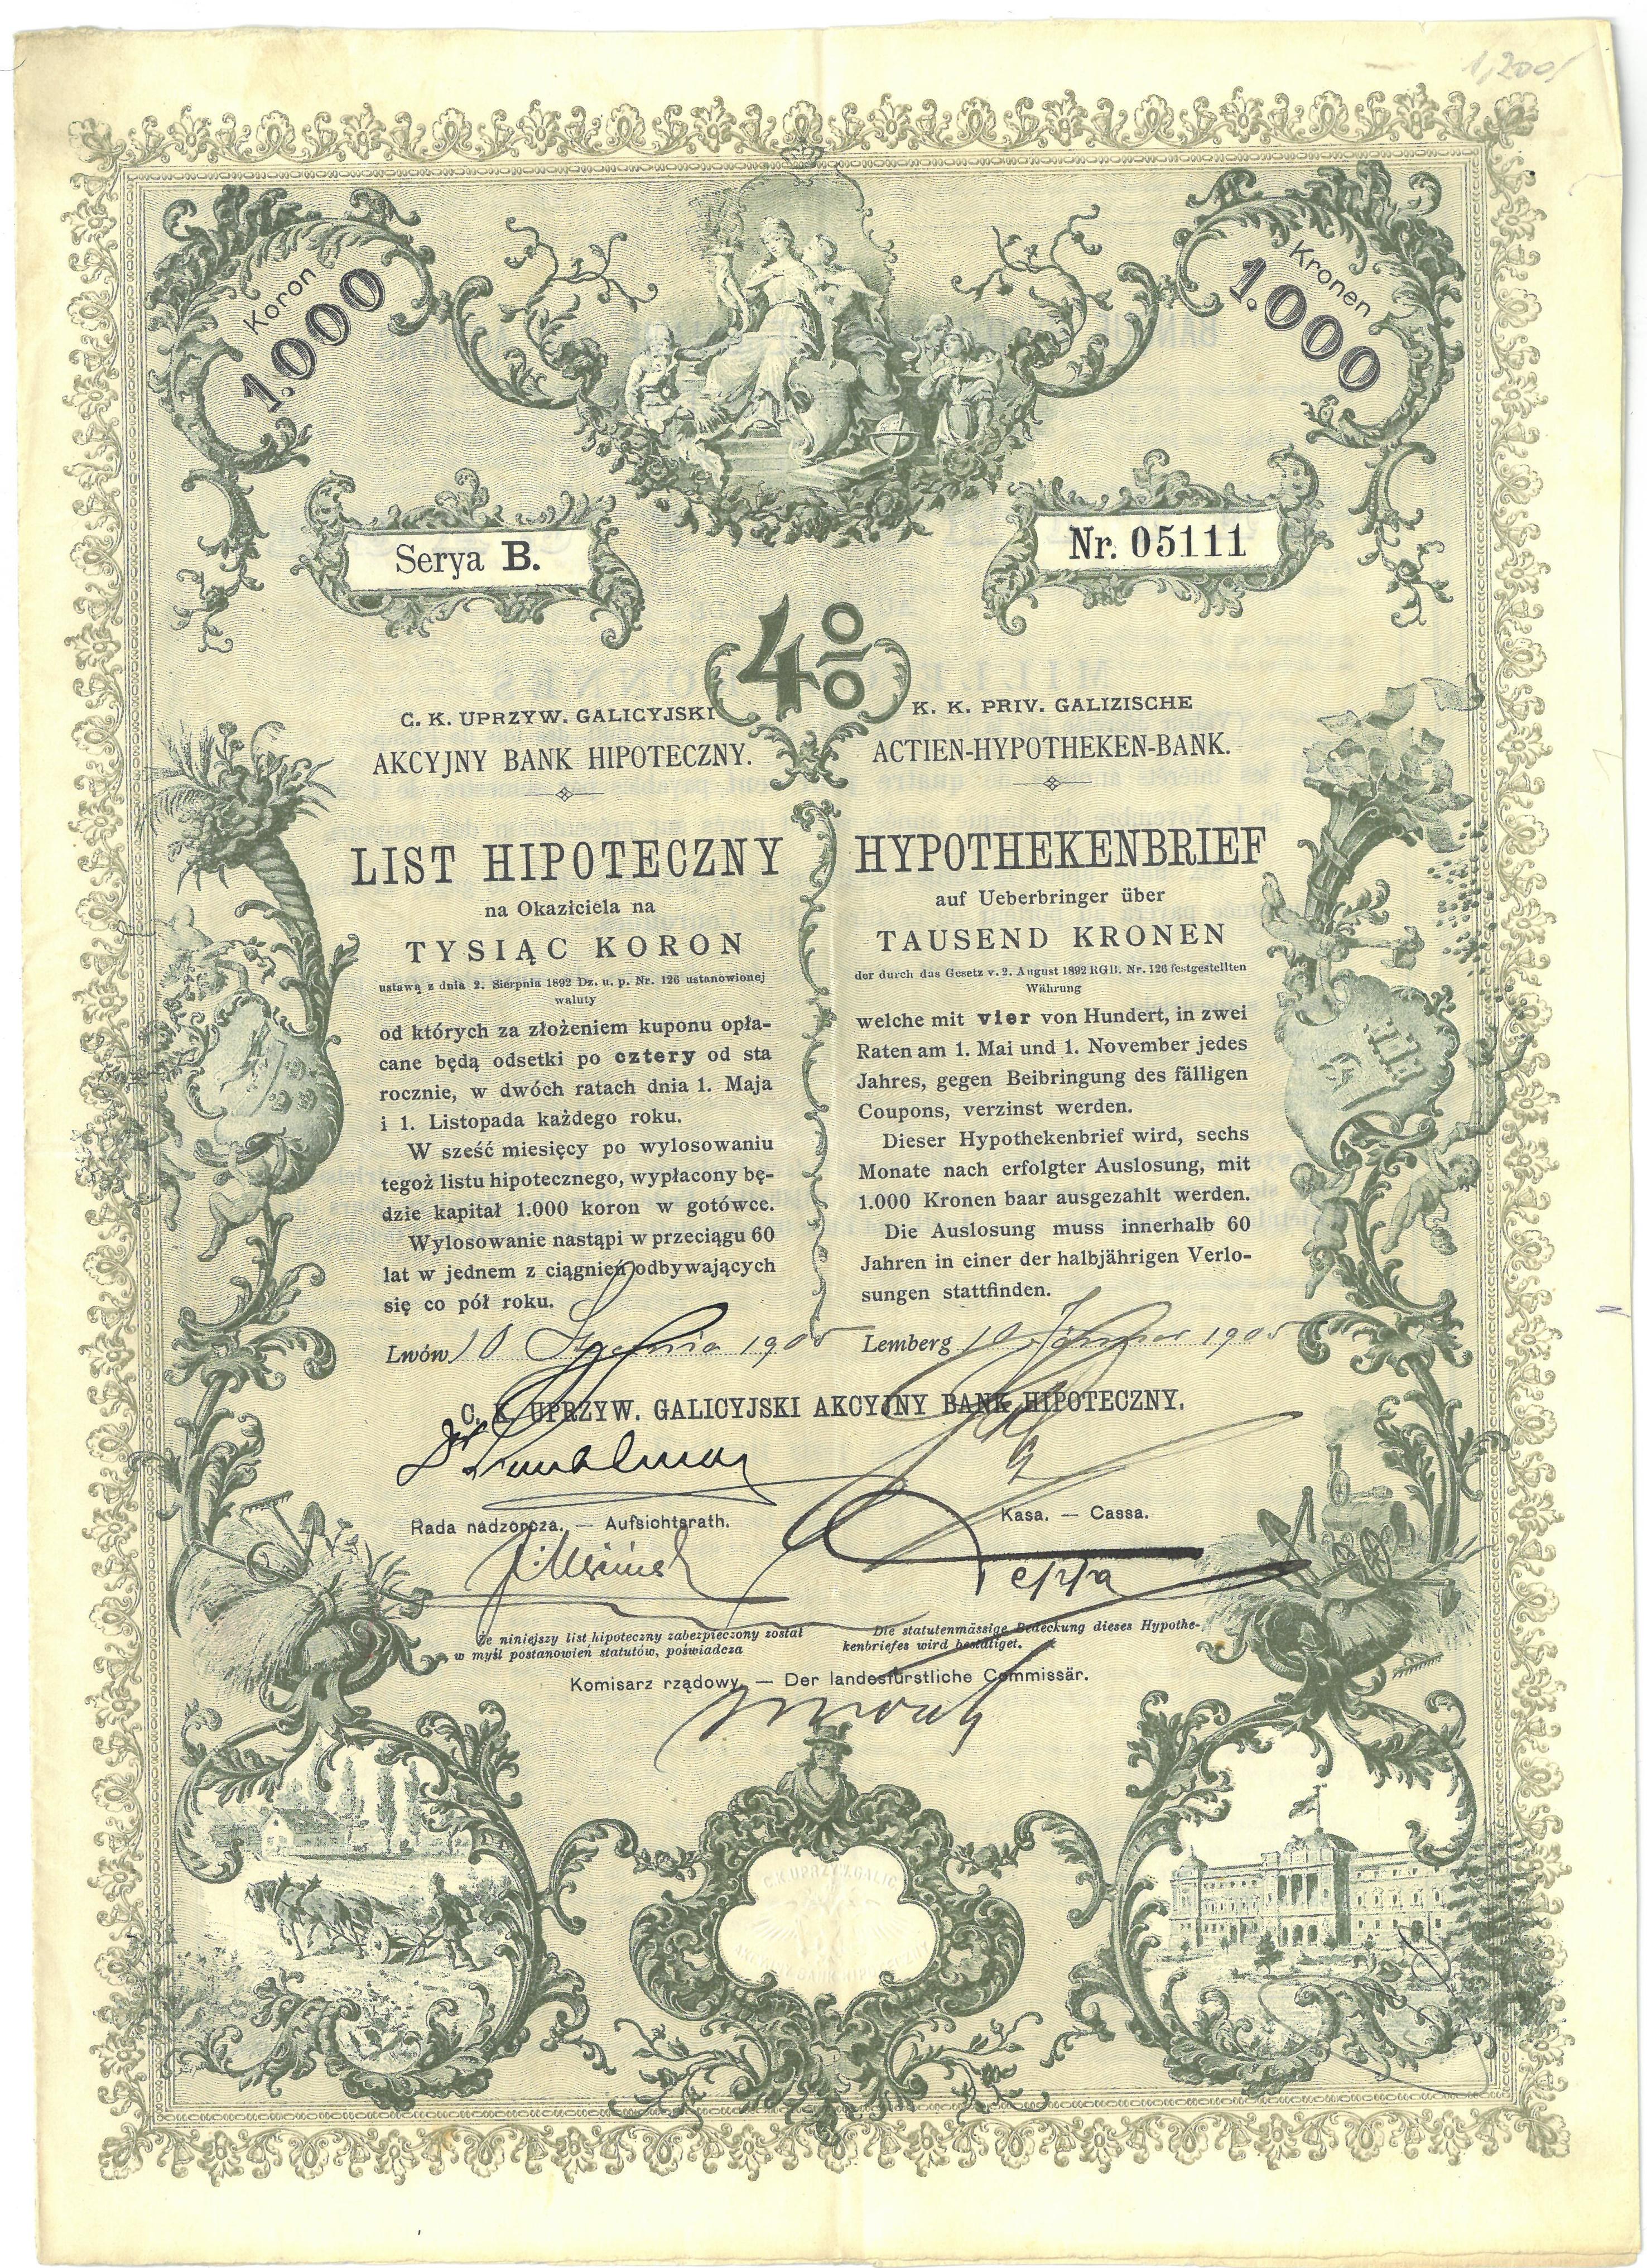 1,200
Koron
1.000
Kronen
1.000
Serya B.
Nr. 05111
4%
C. K. UPRZYW. GALICYJSKI
AKCYJNY BANK HIPOTECZNY.
LIST HIPOTECZNY
na Okaziciela na
TYSIĄC KORON
ustawą z dnia 2. Sierpnia 1892 Dz. u. p. Nr. 126 ustanowionej
waluty
od których za złożeniem kuponu opła-
cane będą odsetki po cztery od sta
rocznie, w dwóch ratach dnia 1. Maja
i 1. Listopada każdego roku.
W sześć miesięcy po wylosowaniu
tegoż listu hipotecznego, wypłacony bę-
dzie kapitał 1.000 koron w gotówce.
Wylosowanie nastąpi w przeciągu 60
lat w jednem z ciągnień odbywających
się co pół roku.
Lwów 10 Stycznia 1905
K. K. PRIV. GALIZISCHE
ACTIEN-HYPOTHEKEN-BANK.
HYPOTHEKENBRIEF
auf Ueberbringer über
TAUSEND KRONEN
der durch das Gesetz v. 2. August 1892 RGB. Nr. 126 festgestellten
Währung
welche mit vier von Hundert, in zwei
Raten am 1. Mai und 1. November jedes
Jahres, gegen Beibringung des fälligen
Coupons, verzinst werden.
Dieser Hypothekenbrief wird, sechs
Monate nach erfolgter Auslosung, mit
1.000 Kronen baar ausgezahlt werden.
Die Auslosung muss innerhalb 60
Jahren in einer der halbjährigen Verlo-
sungen stattfinden.
Lemberg 10 Jänner 1905
C. K. UPRZYW. GALICYJSKI AKCYJNY BANK HIPOTECZNY.
Rada nadzorcza. — Aufsichtsrath.
Kasa. — Cassa.
Że niniejszy list hipoteczny zabezpieczony został
w myśl postanowień statutów, poświadcza
Die statutenmässige Bedeckung dieses Hypothe-
kenbriefes wird bestätiget.
Komisarz rządowy. — Der landesfürstliche Commissär.
C.K. UPRZYW. GALIC.
AKCYJNY BANK HIPOTECZNY